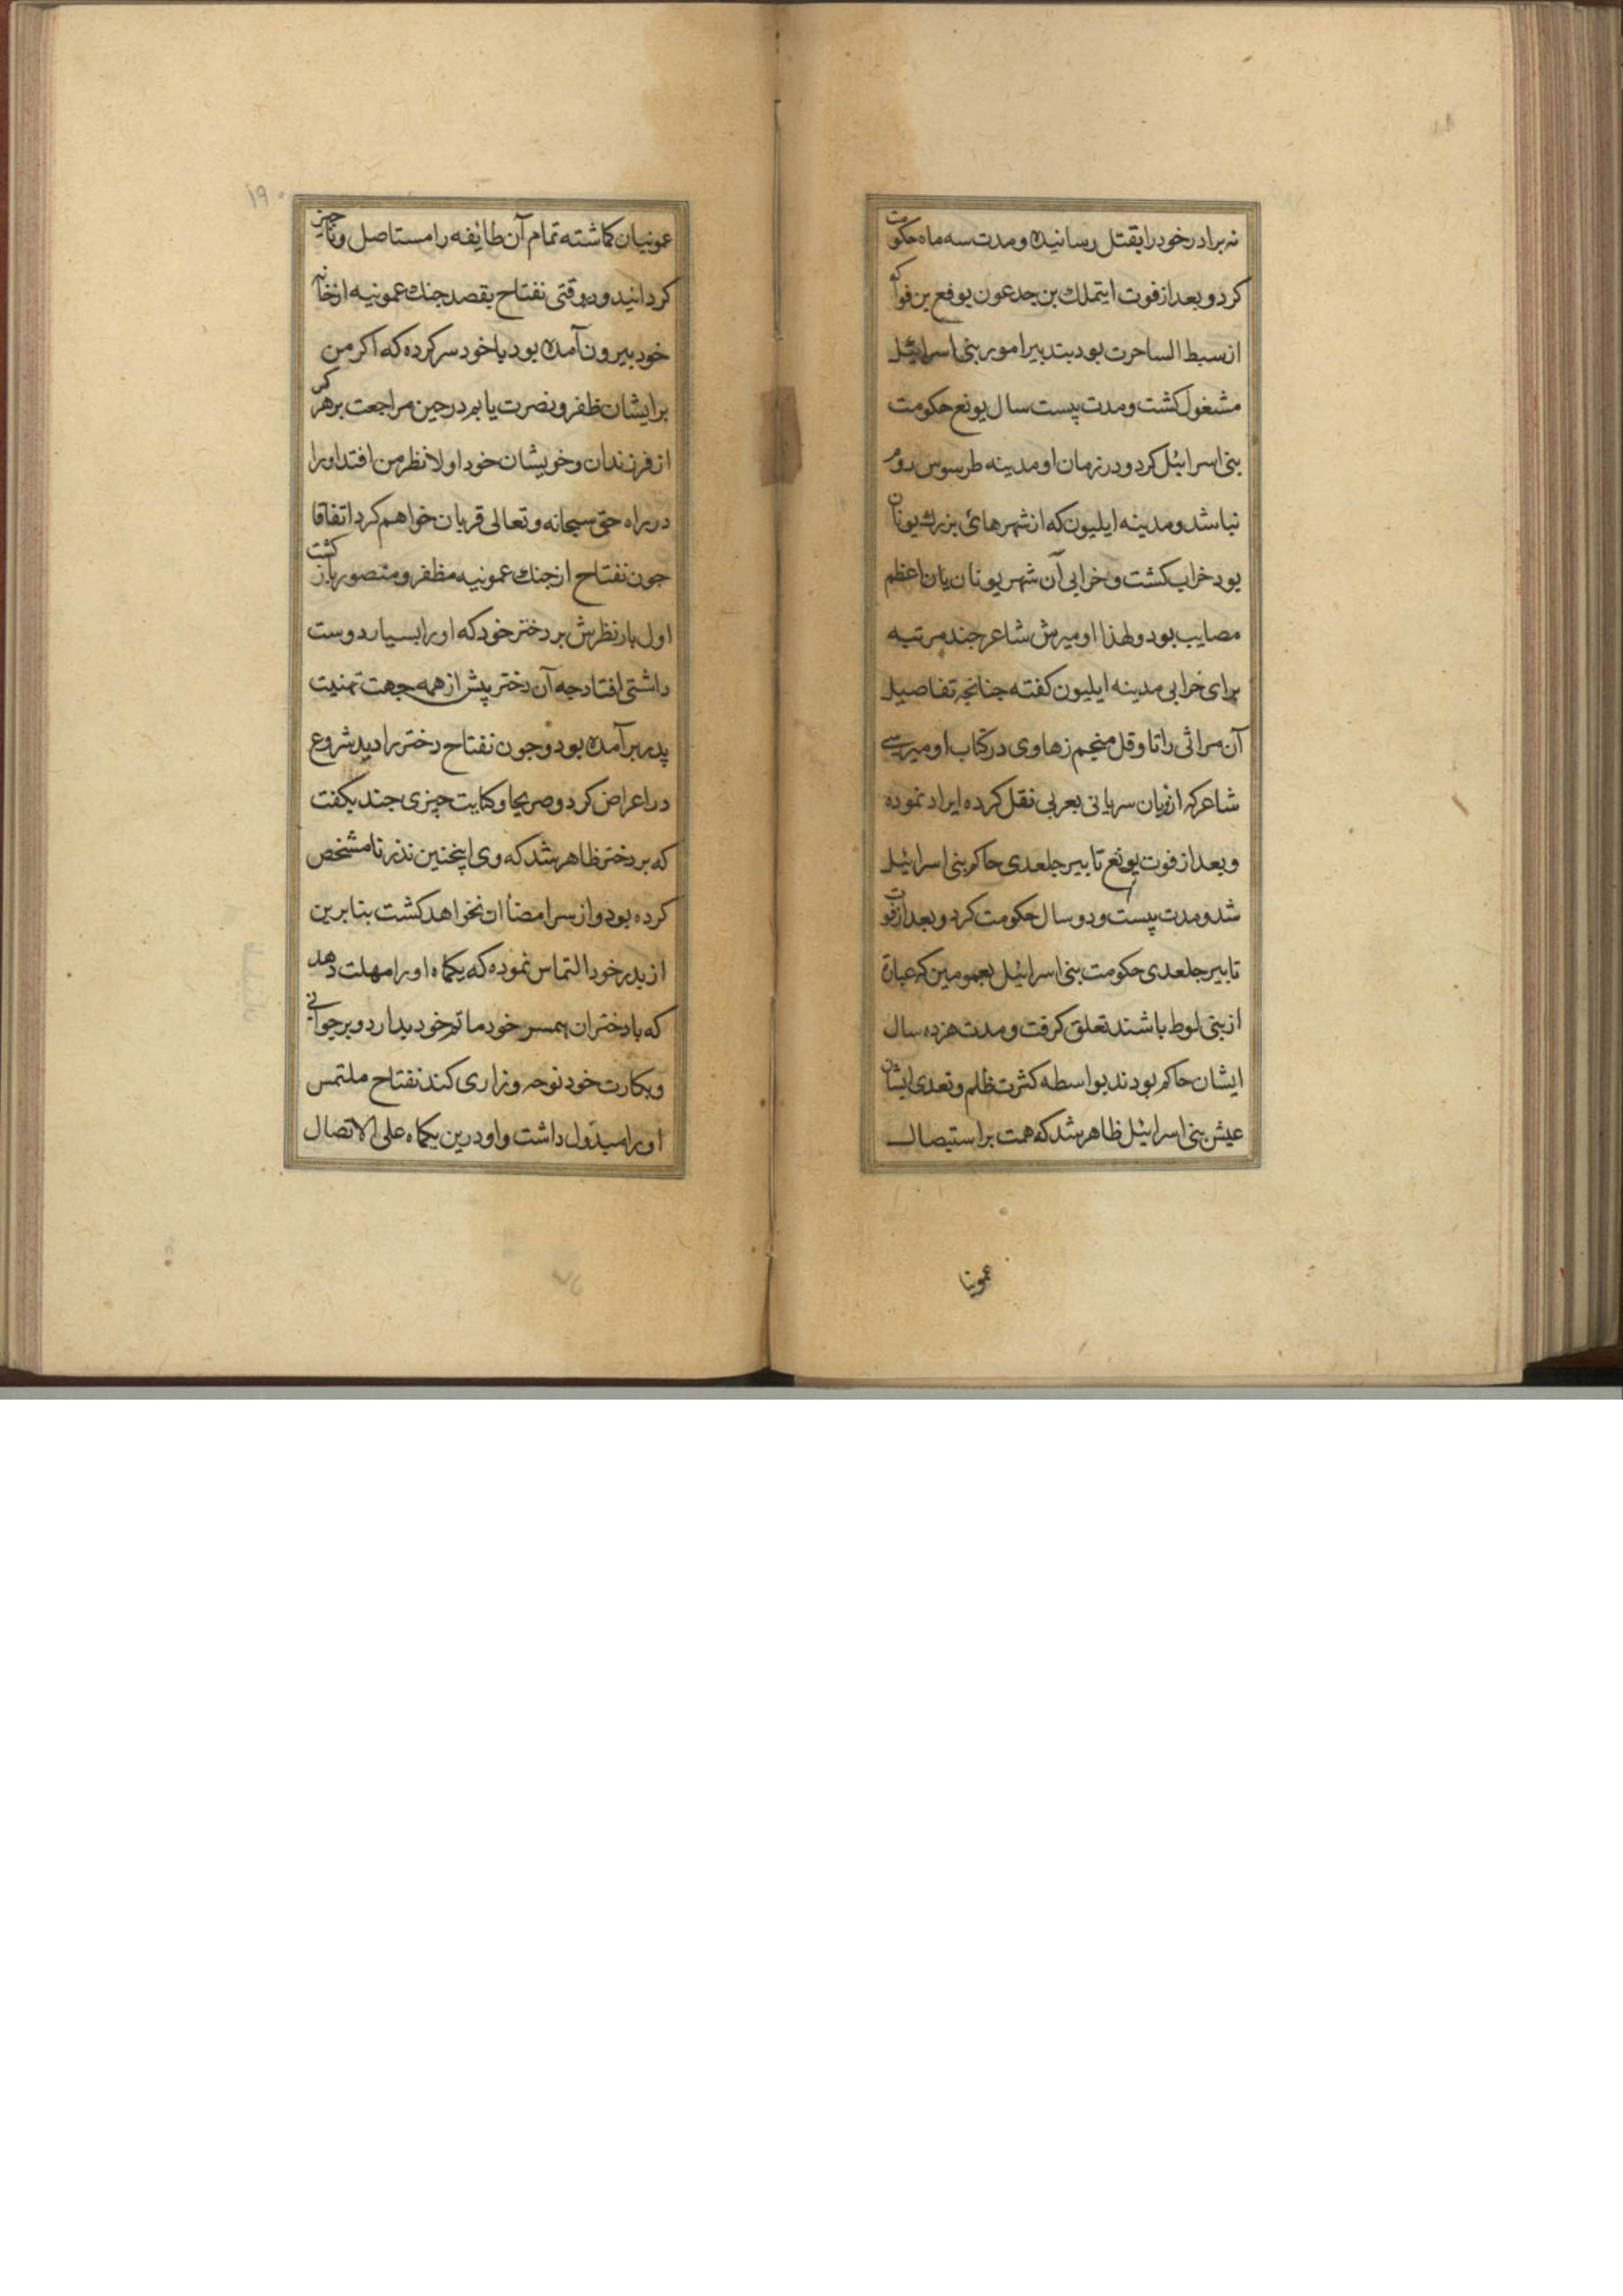 نه برادر خود را بقتل رسانیده و مدت سه ماه حکومت
کرد و بعد از فوت ایتملک بن جدعون یوفع بن فواکه
از سبط الساحرت بود بتدبیر امور بنی اسرائیل
مشغول کشت و مدت بیست سال یونع حکومت
بنی اسرائیل کرد و در زمان او مدینه طرسوس روم
نباشد و مدینه ایلیون که از شهرهای بزرک یونان
بود خراب کشت و خرابی آن شهر یونانیان را اعظم
مصایب بود و لهذا اومیرش شاعر جند مرتبه
برای خرابی مدینه ایلیون کفته جنانجه تفاصیل
آن مراثی را تاوقل منجم زهاوی در کتاب اومیرسی
شاعر که از زبان سریانی بعربی نقل کرده ایراد نموده
و بعد از فوت یونع تابیر جلعدی حاکم بنی اسرائیل
شد و مدت بیست و دو سال حکومت کرد و بعد از فوت
تابیر جلعدی حکومت بنی اسرائیل بعمومین که عبارة
از بنی لوط باشند تعلق کرفت و مدت هژده سال
ایشان حاکم بودند بواسطه کثرت ظلم و تعدی ایشان
عیش بنی اسرائیل ظاهر شد که همت بر استیصال
عمونیا
۱۹۰
عمونیان کماشته تمام آن طایفه را مستاصل و ناچیز
کردانید و در وقتی نفتاح بقصد جنک عمونیه از خانه
خود بیرون آمده بود با خود سر کرده که اکر من
بر ایشان ظفر و نصرت یابم در حین مراجعت بر هر کس
از فرزندان و خویشان خود اولا نظر من افتد او را
در راه حق سبحانه و تعالی قربان خواهم کرد اتفاقا
جون نفتاح از جنک عمونیه مظفر و منصور باز کشت
اول بار نظرش بر دختر خود که او را بسیار دوست
داشتی افتاد جه آن دختر پیش از همه جهت تهنیت
پدر برآمده بود و جون نفتاح دختر را دید شروع
در اعراض کرد و صریحا و کنایت چیزی جند بکفت
که بر دختر ظاهر شد که وی اینچنین نذر نامشخص
کرده بود و از سر امضاأ ان نخواهد کشت بنابرین
از بدر خود التماس نموده که یکماه او را مهلت دهد
که با دختران همسر خود ماتم خود بدارد و بر جوانی
و بکارت خود نوحه و زاری کند نفتاح ملتمس
او را مبذول داشت و او درین یکماه علی الاتصال